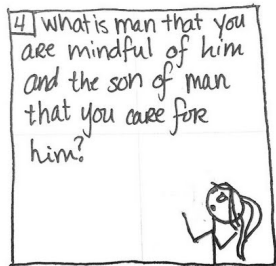 4 What is man that you
are mindful of him
and the son of man
that you care for
him?